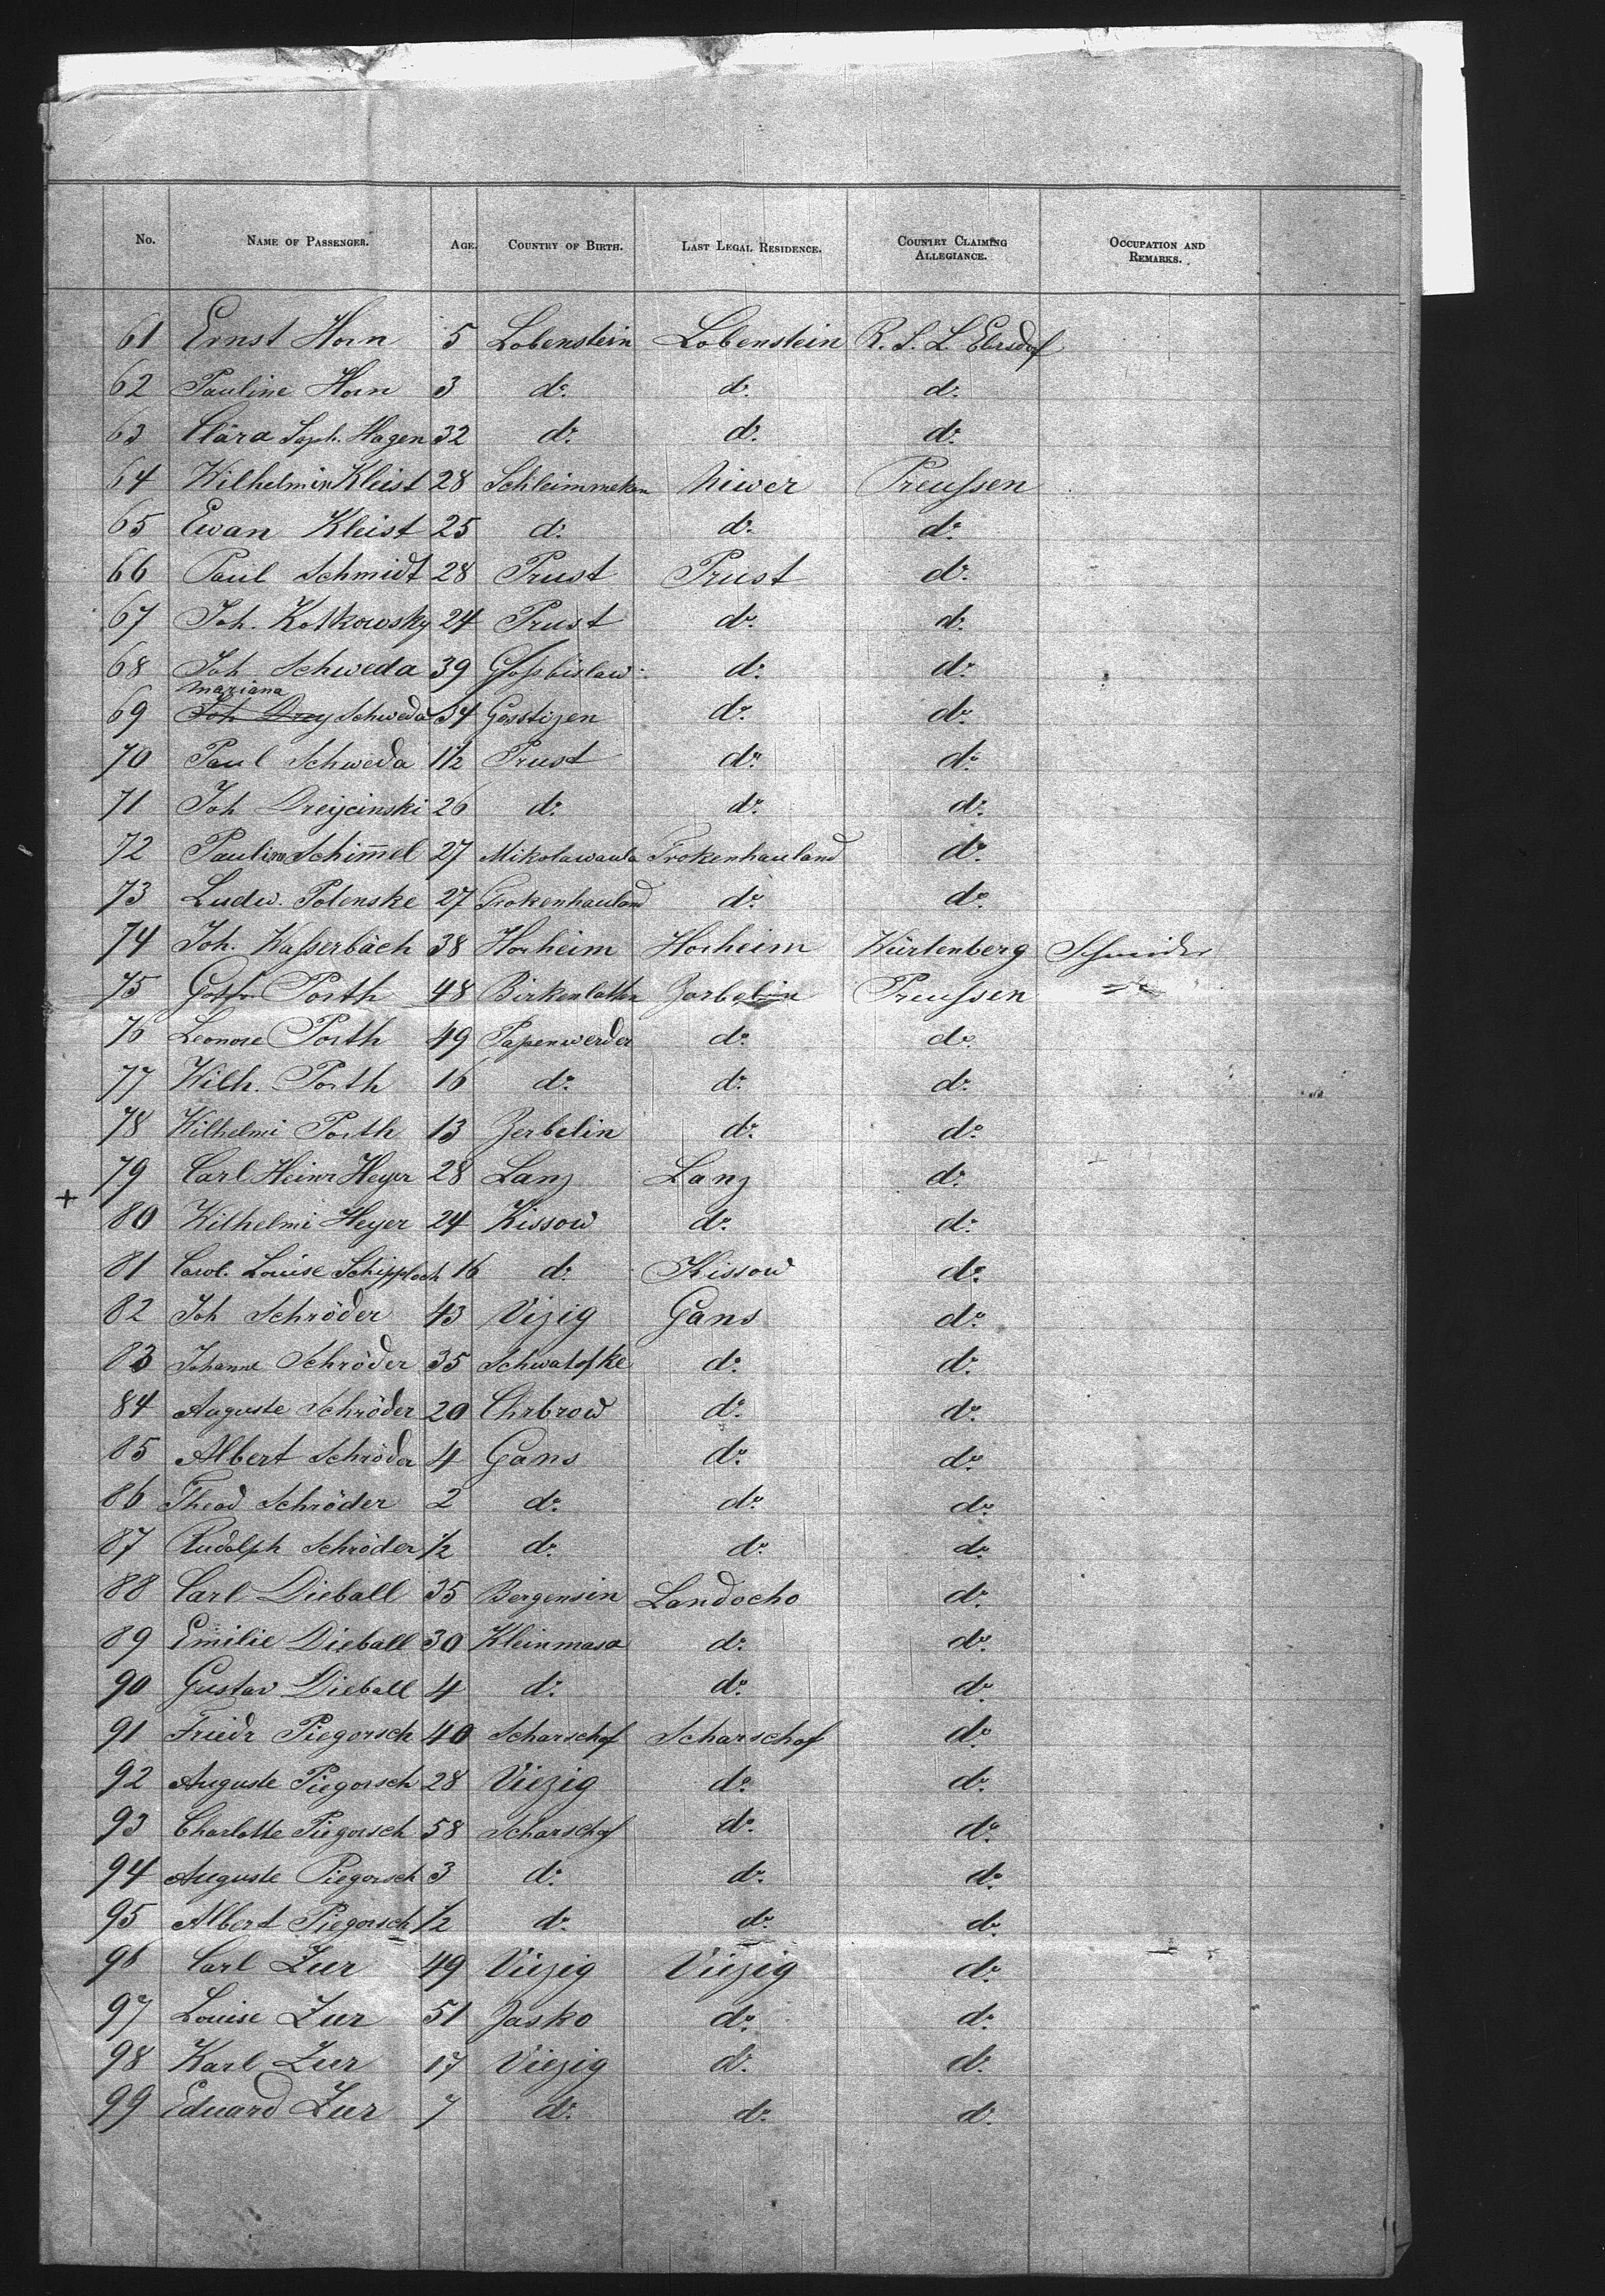 No. NAME OF PASSENGER. AGE. COUNTRY OF BIRTH. LAST LEGAL RESIDENCE. COUNTRY CLAIMING ALLEGIANCE. OCCUPATION AND REMARKS.
61 Ernst Horn 5 Lobenstein Lobenstein R. S. L. Ebersdorf
62 Pauline Horn 3 do. do. do.
63 Clara Soph. Hagen 32 do. do. do.
64 Wilhelmin Kleist 28 Schleimmeken Niwer Preußen
65 Ewan Kleist 25 do. do. do.
66 Paul Schmidt 28 Prust Prust do.
67 Joh. Kotkowsky 24 Prust do. do.
68 Joh Schweda 39 Großbislaw do. do.
mariana
69 Joh Drey Schweda 34 Gosstizen do. do.
70 Paul Schweda 1 1/2 Prust do. do.
71 Joh Dreycinski 26 do. do. do.
72 Pauline Schim̄el 27 Mikolawaula Trokenhauland do.
73 Ludw. Polenske 27 Trokenhauland do. do.
74 Joh. Waßerbäch 38 Horheim Horheim Würtenberg Schneider
75 Gottfr Porth 48 Birkenlatten Zorbelin Preußen
76 Leonore Porth 49 Papenwerder do. do.
77 Wilh. Porth 16 do. do. do.
78 Wilhelmi Porth 13 Zerbelin do. do.
79 Carl Heinr Heyer 28 Lanz Lanz do.
+
80 Wilhelmi Heyer 24 Kissow do. do.
81 Carol. Louise Schipploch 16 do. Kissow do.
82 Joh Schröder 43 Vizig Gans do.
83 Johanne Schröder 35 Schwatofke do. do.
84 Auguste Schröder 20 Chrbrow do. do.
85 Albert Schröder 4 Gans do. do.
86 Theod Schröder 2 do. do. do.
87 Rudolph Schröder 1/2 do. do. do.
88 Carl Dieball 35 Bergensin Landocho do.
89 Emilie Dieball 30 Kleinmasa do. do.
90 Gustav Dieball 4 do. do. do.
91 Friedr Piegorsch 40 Scharschof Scharschof do.
92 Auguste Piegorsch 28 Viezig do. do.
93 Charlotte Piegorsch 58 Scharschof do. do.
94 Auguste Piegorsch 3 do. do. do.
95 Albert Piegorsch 1/2 do. do. do.
96 Carl Zur 49 Viezig Viezig do.
97 Louise Zur 51 Jasko do. do.
98 Karl Zur 17 Viezig do. do.
99 Eduard Zur 7 do. do. do.